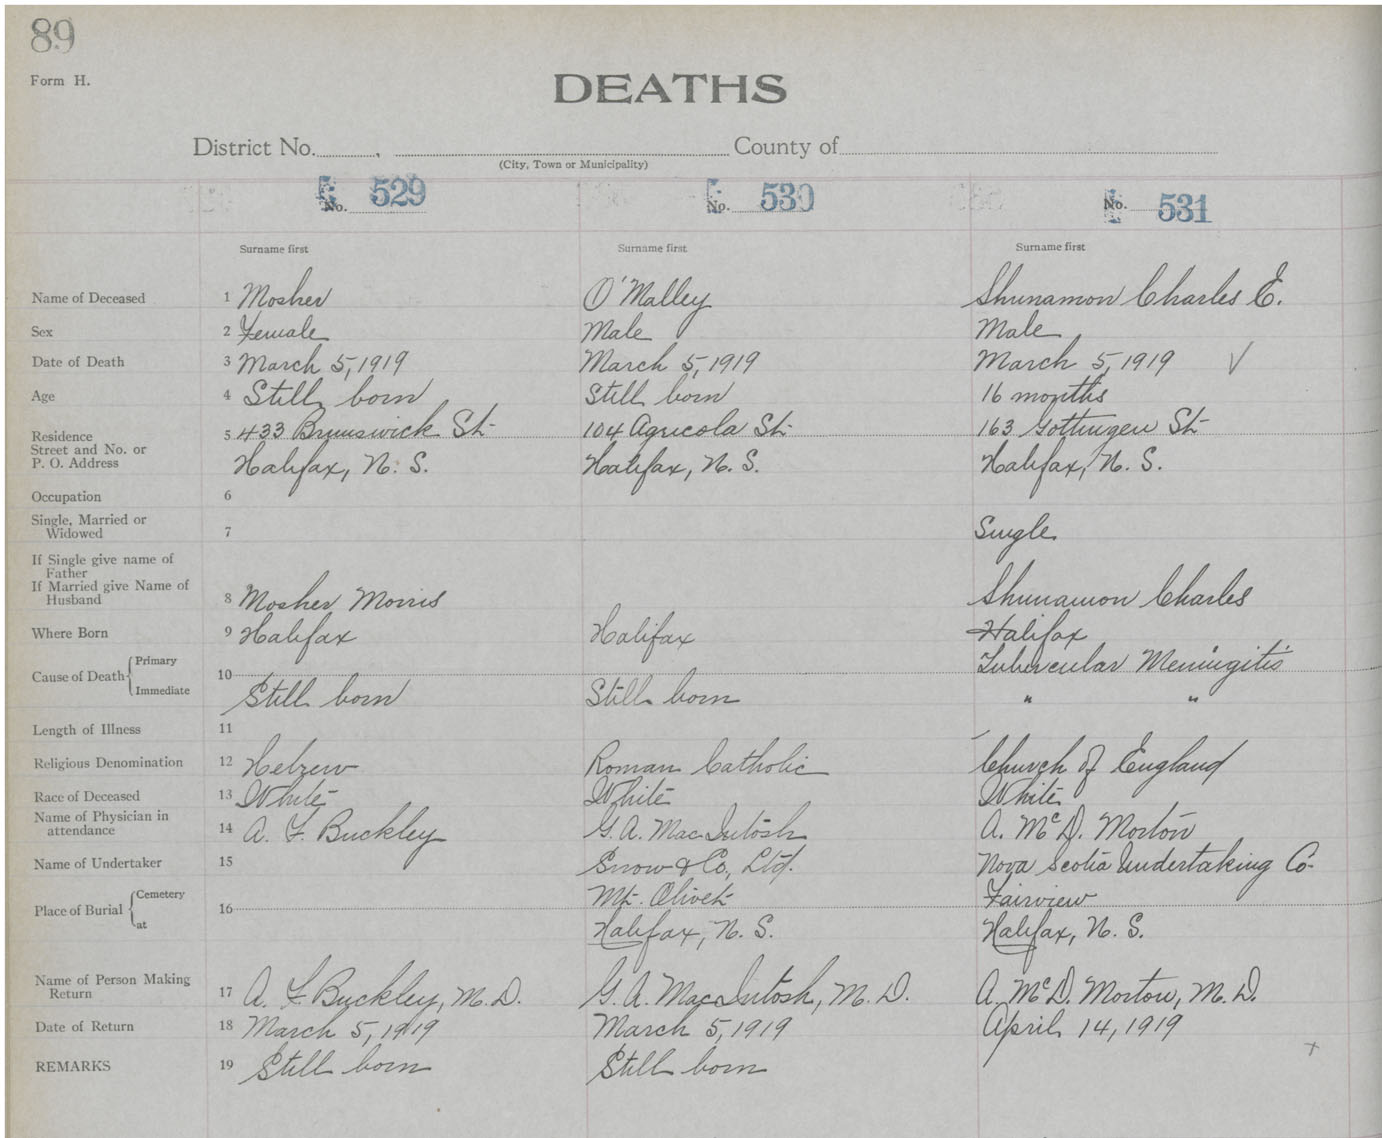 89
Form H.
DEATHS
District No. , County of
(City, Town or Municipality)
No. 529 No. 530 No. 531
Surname first Surname first Surname first
Name of Deceased 1 Mosher O'Malley Shunamon Charles E.
Sex 2 Female Male Male
Date of Death 3 March 5, 1919 March 5, 1919 March 5, 1919 √
Age 4 Still born Still born 16 months
Residence 5 433 Brunswick St. 104 Agricola St. 163 Gottingen St.
Street and No. or
P. O. Address Halifax, N. S. Halifax, N. S. Halifax, N. S.
Occupation 6
Single, Married or
Widowed 7 Single
If Single give name of
Father
If Married give Name of
Husband 8 Mosher Morris Shunamon Charles
Where Born 9 Halifax Halifax Halifax
Cause of Death Primary 10 Tubercular Meningitis
Immediate Still born Still born " "
Length of Illness 11
Religious Denomination 12 Hebrew Roman Catholic Church of England
Race of Deceased 13 White White White
Name of Physician in
attendance 14 A. F. Buckley G. A. MacIntosh A. McD. Morton
Name of Undertaker 15 Snow & Co., Ltd. Nova Scotia Undertaking Co.
Place of Burial Cemetery 16 Mt. Olivet Fairview
at Halifax, N. S. Halifax, N. S.
Name of Person Making
Return 17 A. F. Buckley, M. D. G. A. MacIntosh, M. D. A. McD. Morton, M. D.
Date of Return 18 March 5, 1919 March 5, 1919 April 14, 1919
REMARKS 19 Still born Still born +